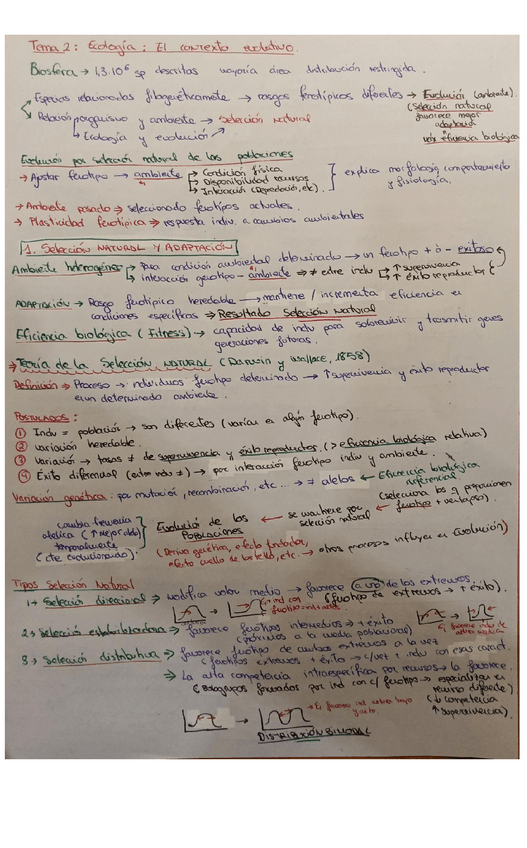 Tema 2: Ecología: El contexto evolutivo.
Biosfera → 1,3·10⁶ sp descritas mayoría área distribución restringida.
Especies relacionadas filogenéticamente → rasgos fenotípicos diferentes → Evolución (ambiente).
(Selección natural
favorece mejor
adaptación
Relación organismo y ambiente → Selección natural
eficiencia biológica
↳ Ecología y evolución
Evolución por selección natural de las poblaciones
→ Ajustar fenotipo → ambiente → Condición física
→ Disponibilidad recursos
→ Interacción (Depredación, etc)
explica morfología, comportamiento
y fisiología.
→ Ambiente pasado → seleccionado fenotipos actuales.
→ Plasticidad fenotípica → respuesta indiv. a cambios ambientales
1. Selección NATURAL Y ADAPTACIÓN
Ambiente heterogéneo → Para condición ambiental determinada → un fenotipo + ó - exitoso
↳ interacción genotipo - ambiente → ≠ entre indv → ↑ supervivencia
↳ ↑ éxito reproductor
ADAPTACIÓN → Rasgo fenotípico heredable → mantiene / incrementa eficiencia en
condiciones específicas → Resultado Selección Natural
Eficiencia biológica (Fitness) → capacidad de indv para sobrevivir y transmitir genes
generaciones futuras.
→ Teoría de la Selección NATURAL (Darwin y Wallace, 1858)
Definición → Proceso → individuos fenotipo determinado → ↑ supervivencia y éxito reproductor
en un determinado ambiente.
POSTULADOS:
① Indv = población → son diferentes (varían en algún fenotipo).
② variación heredable.
③ Variación → tasas ≠ de supervivencia y éxito reproductor. (> eficiencia biológica relativa)
④ Éxito diferencial (entre indv ≠) → por interacción fenotipo indiv y ambiente.
Variación genética: por mutación, recombinación, etc... → ≠ alelos ← Eficiencia biológica
diferencial
(selecciona los q proporcionen
fenotipo + ventajoso)
cambia frecuencia
alélica (↑ mejor dotado)
temporalmente
(cte evolucionando)
Evolución de las
Poblaciones
← se mantiene por
selección natural
(Deriva genética, efecto fundador,
efecto cuello de botella, etc. → otros procesos influyen en Evolución)
Tipos Selección Natural
1→ Selección direccional → modifica valor medio → favorece (a uno) de los extremos.
(fenotipo de extremos → + éxito).
2→ Selección estabilizadora → favorece fenotipos intermedios → + éxito
(próximos a la media poblacional)
3→ Selección disruptiva → favorece fenotipo de ambos extremos a la vez
(fenotipos extremos + éxito → c/vez + indv con esas caract.
→ La alta competencia intraespecífica por recursos → la favorece.
(Subgrupos formados por ind con c/ fenotipo → especializan en
recurso diferente)
(↓ competencia
↑ supervivencia)
DISTRIBUCIÓN BIMODAL